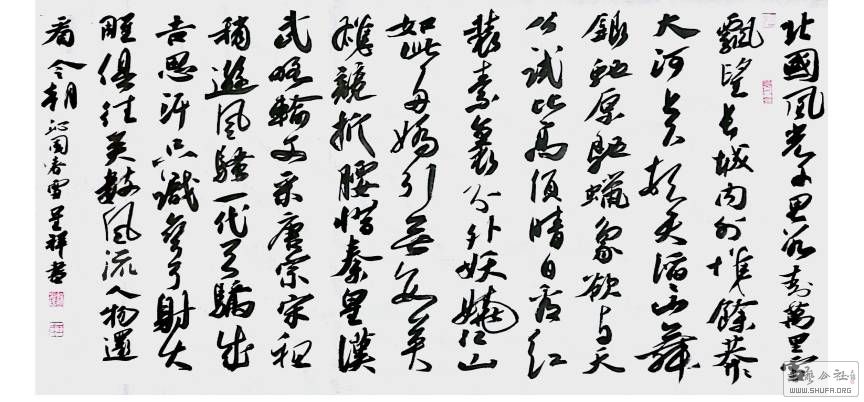 北國風光千里冰封萬里雪
飄望長城内外惟餘莽
大河上下頓失滔〻山舞
銀蛇原馳蠟象欲與天
公試比高須晴日看紅
裝素裹分外妖嬈江山
如此多嬌引無數英
雄競折腰惜秦皇漢
武略輸文采唐宗宋祖
稍遜風騷一代天驕成
吉思汗只識彎弓射大
雕俱往矣數風流人物還
看今朝 沁園春雪 呈祥書
公社
WWW.SHUFA.ORG